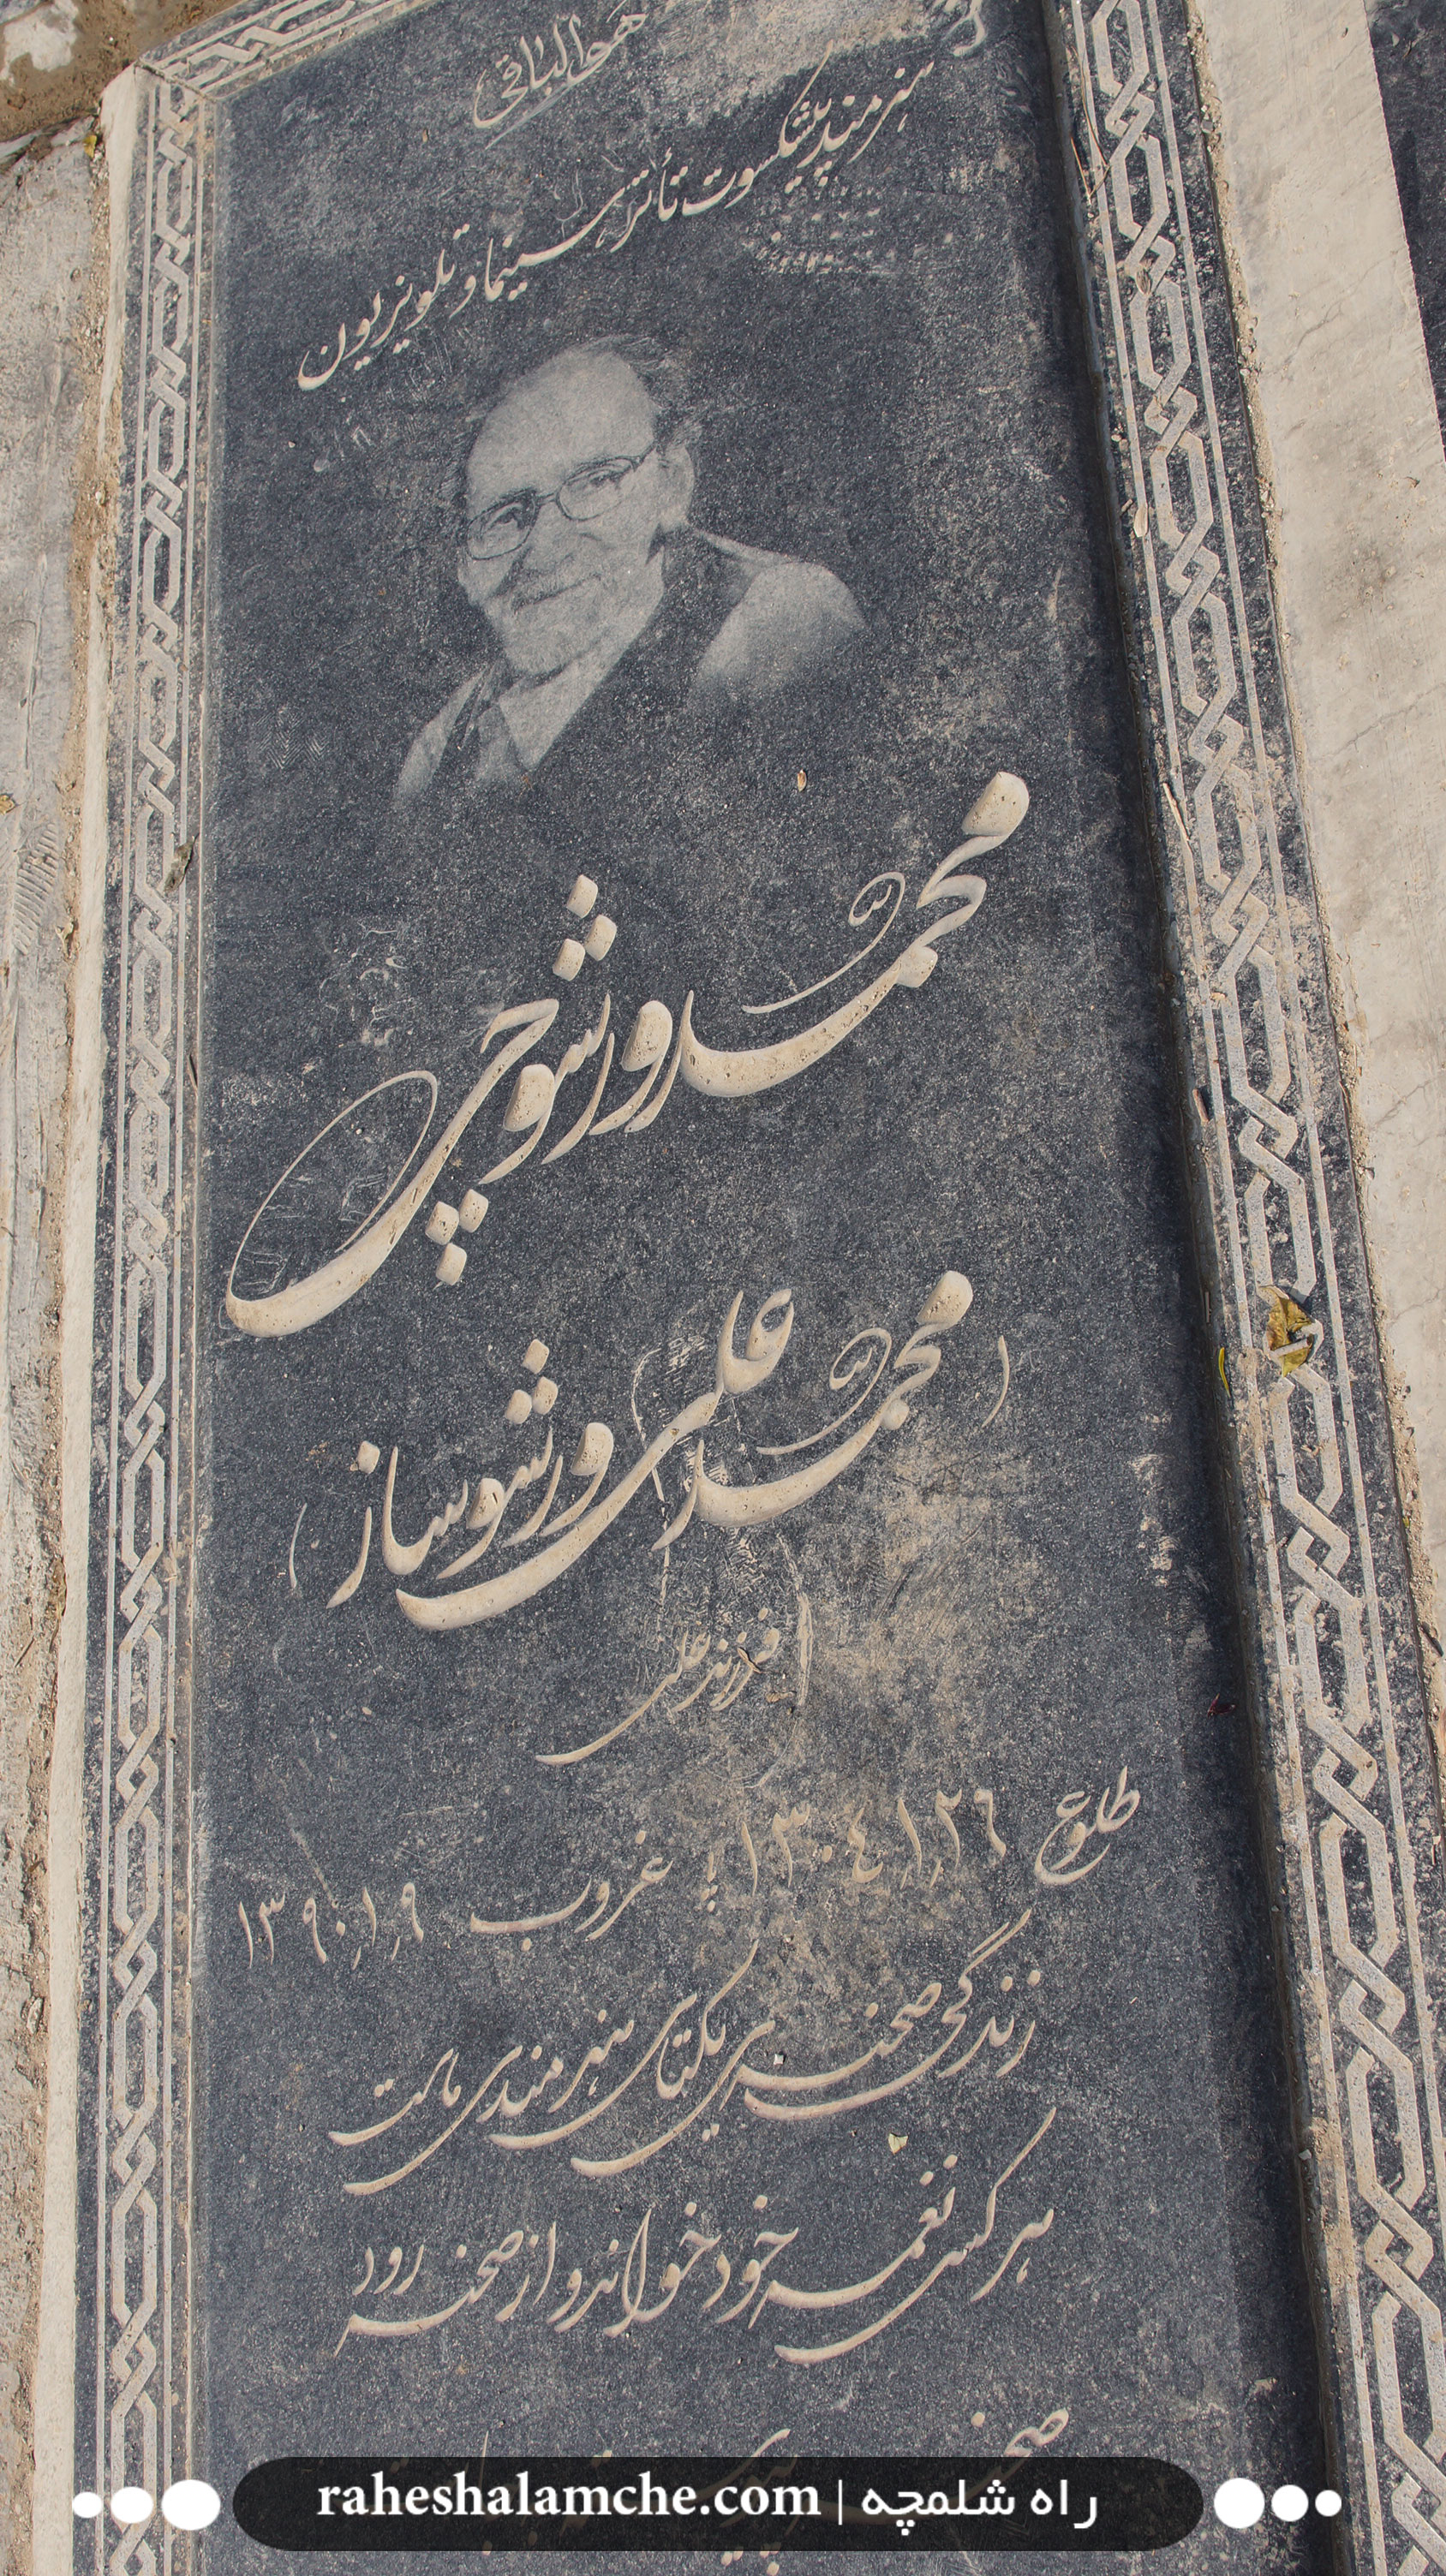 هوالباقی
هنرمند پیشکسوت تأتر، سینما و تلویزیون
محمد ورشوچی
(محمد علی ورشوساز)
فرزند علی
طلوع ۱۳۰۴/۱۲/۶ غروب ۱۳۹۰/۱/۹
زندگی صحنه ی یکتای هنرمندی ماست
هر کسی نغمه خود خواند و از صحنه رود
raheshalamche.com | راه شلمچه